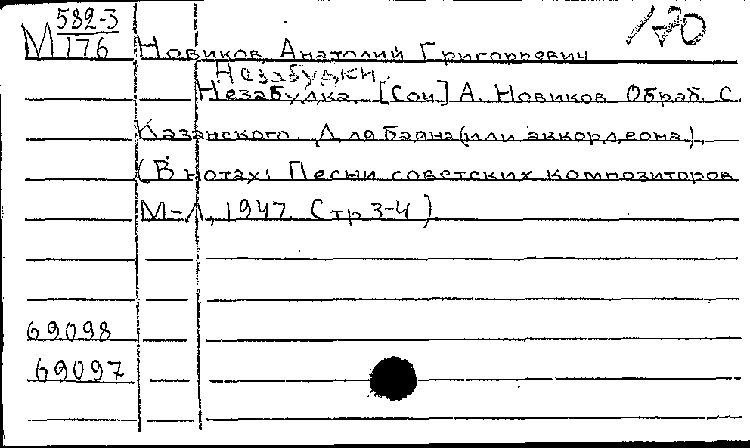 М 582-3/176 Новиков, Анатолий Григорьевич 120
Незабудки.
Незабудка. [Соч] А. Новиков Обраб. С.
Казанского. Для баяна (или аккордеона).
(В нотах: Песни советских композиторов
М-Л, 1947. Стр 3-4)
69098
69097